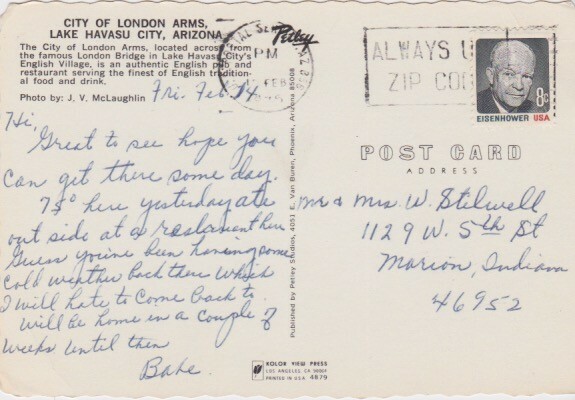 CITY OF LONDON ARMS,
LAKE HAVASU CITY, ARIZONA
The City of London Arms, located across from
the famous London Bridge in Lake Havasu City's
English Village, is an authentic English pub and
restaurant serving the finest of English tradition-
al food and drink.
Photo by: J. V. McLaughlin
Petley
PM
FEB
ALWAYS U
ZIP COD
8c
EISENHOWER USA
Fri. Feb 14
Hi,
Great to see hope you
can get there some day.
75° here yesterday ate
out side at a restaurant here
Guess you've been having some
cold weather back there which
I will hate to come back to.
Will be home in a couple of
weeks until then
Babe.
Published by Petley Studios, 4051 E. Van Buren, Phoenix, Arizona 85008
POST CARD
ADDRESS
Mr & Mrs. W. Stilwell
1129 W. 5th St
Marion, Indiana
46952
KOLOR VIEW PRESS
LOS ANGELES, CA 90064
PRINTED IN U.S.A. 4879